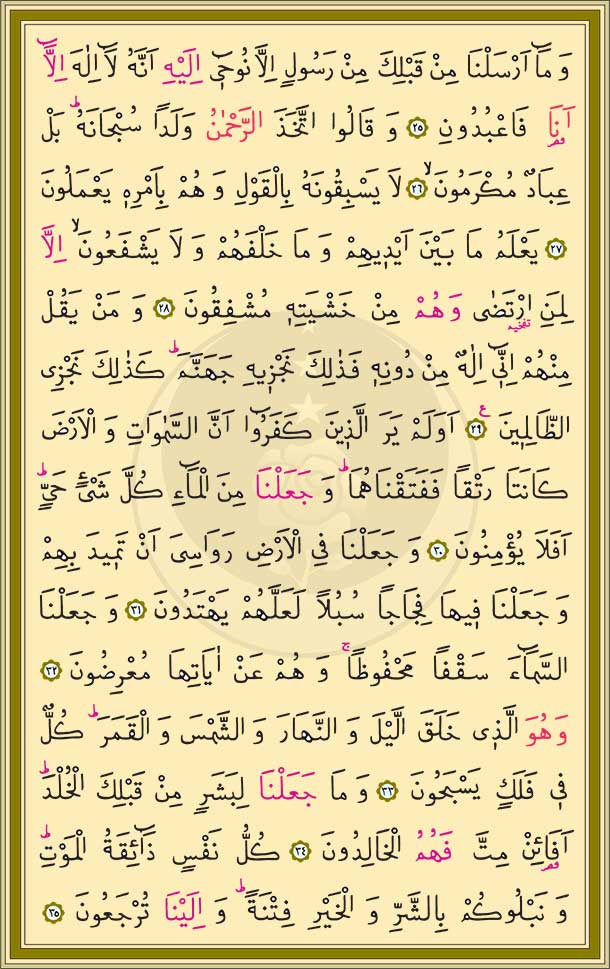 وَ مَٓا اَرْسَلْنَا مِنْ قَبْلِكَ مِنْ رَسُولٍ اِلَّا نُوحٖٓي اِلَيْهِ اَنَّهُ لَٓا اِلٰهَ اِلَّٓا
اَنَا۬ فَاعْبُدُونِ ﴿٢٥﴾ وَ قَالُوا اتَّخَذَ الرَّحْمٰنُ وَلَدًا سُبْحَانَهُ ط بَلْ
عِبَادٌ مُكْرَمُونَ لا ﴿٢٦﴾ لَا يَسْبِقُونَهُ بِالْقَوْلِ وَ هُمْ بِاَمْرِهٖ يَعْمَلُونَ
﴿٢٧﴾ يَعْلَمُ مَا بَيْنَ اَيْدٖيهِمْ وَ مَا خَلْفَهُمْ وَ لَا يَشْفَعُونَ لا اِلَّا
لِمَنِ ارْتَضٰى وَ هُمْ مِنْ خَشْيَتِهٖ مُشْفِقُونَ ﴿٢٨﴾ وَ مَنْ يَقُلْ
مِنْهُمْ اِنّٖٓي اِلٰهٌ مِنْ دُونِهٖ فَذٰلِكَ نَجْزٖيهِ جَهَنَّمَ ط كَذٰلِكَ نَجْزِي
الظَّالِمٖينَ ع ﴿٢٩﴾ اَوَلَمْ يَرَ الَّذٖينَ كَفَرُٓوا اَنَّ السَّمٰوَاتِ وَ الْاَرْضَ
كَانَتَا رَتْقًا فَفَتَقْنَاهُمَا ط وَ جَعَلْنَا مِنَ الْمَٓاءِ كُلَّ شَيْءٍ حَيٍّ ط
اَفَلَا يُؤْمِنُونَ ﴿٣٠﴾ وَ جَعَلْنَا فِي الْاَرْضِ رَوَاسِيَ اَنْ تَمٖيدَ بِهِمْ
وَ جَعَلْنَا فٖيهَا فِجَاجًا سُبُلًا لَعَلَّهُمْ يَهْتَدُونَ ﴿٣١﴾ وَ جَعَلْنَا
السَّمَٓاءَ سَقْفًا مَحْفُوظًا ج وَ هُمْ عَنْ اٰيَاتِهَا مُعْرِضُونَ ﴿٣٢﴾
وَ هُوَ الَّذٖي خَلَقَ الَّيْلَ وَ النَّهَارَ وَ الشَّمْسَ وَ الْقَمَرَ ط كُلٌّ
فٖي فَلَكٍ يَسْبَحُونَ ﴿٣٣﴾ وَ مَا جَعَلْنَا لِبَشَرٍ مِنْ قَبْلِكَ الْخُلْدَ ط
اَفَا۬ئِنْ مِتَّ فَهُمُ الْخَالِدُونَ ﴿٣٤﴾ كُلُّ نَفْسٍ ذَٓائِقَةُ الْمَوْتِ ط
وَ نَبْلُوكُمْ بِالشَّرِّ وَ الْخَيْرِ فِتْنَةً ط وَ اِلَيْنَا تُرْجَعُونَ ﴿٣٥﴾